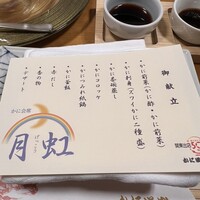 御献立
・かに前菜(かに酢・かに前菜)
・かにお刺身(ズワイかに二種盛)
・かに茶碗蒸し
・かにコロッケ
・かにつみれ紙鍋
・かに釜飯
・赤だし
・香の物
・デザート
かに会席
月虹
げっこう